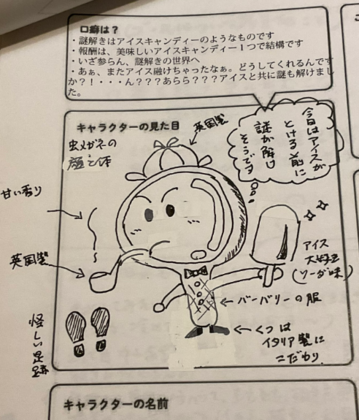 口癖は？
・謎解きはアイスキャンディーのようなものです
・報酬は、美味しいアイスキャンディー1つで結構です
・いざ参らん、謎解きの世界へ
・あぁ、またアイス融けちゃったなぁ。どうしてくれるんです
か？！・・・ん？？？あらら？？？アイスと共に謎も解けまし
た。
キャラクターの見た目
虫メガネの
英国製
今日はアイスが
とける前に
謎が解け
そうです
甘い香り
英国製
アイス
大好き
(ソーダ味)
バーバリーの服
くつは
イタリア製に
こだわり
怪しい足跡
キャラクターの名前